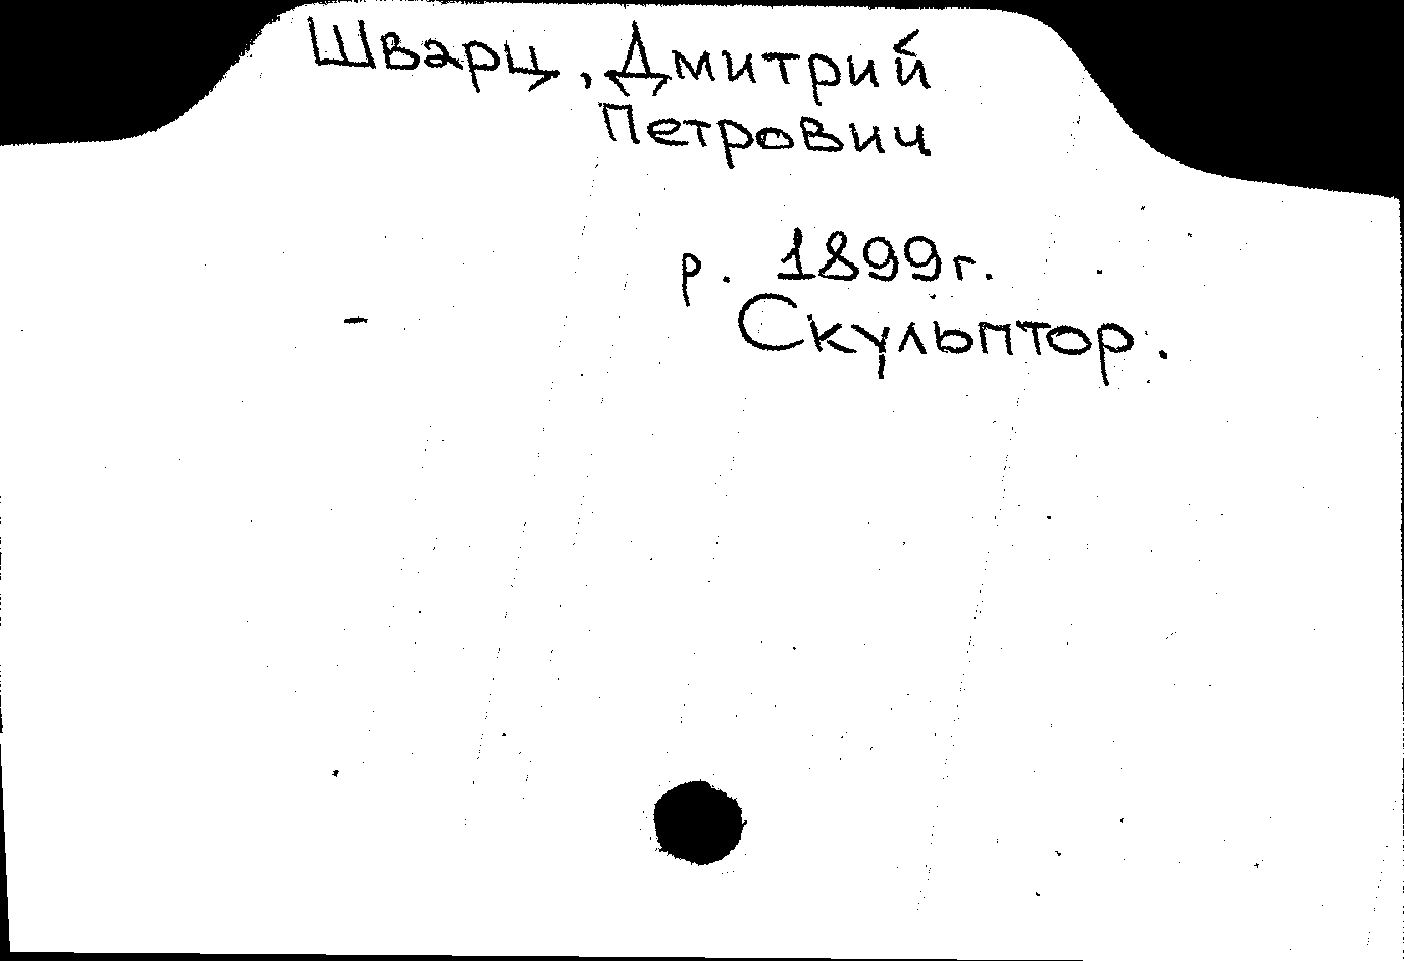 Шварц, Дмитрий
Петрович
р. 1899г.
Скульптор.